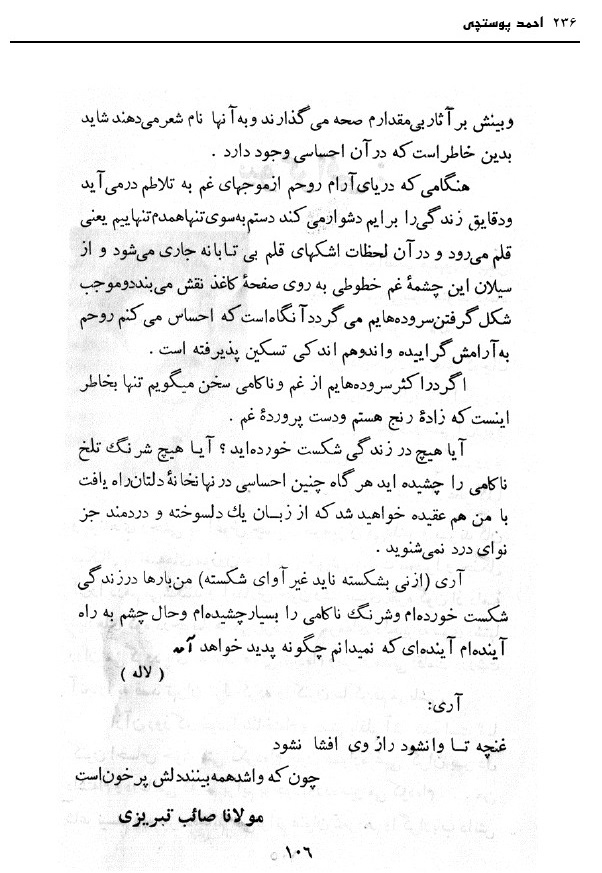 ۲۳۶ احمد پوستچی
وبینش بر آثار بی‌مقدارم صحه می گذارند و به آنها نام شعر می‌دهند شاید
بدین خاطر است که در آن احساسی وجود دارد .
هنگامی که دریای آرام روحم از موجهای غم به تلاطم درمی آید
ودقایق زندگی را برایم دشوار می کند دستم به‌سوی تنها همدم تنهاییم یعنی
قلم می‌رود و در آن لحظات اشکهای قلم بی تابانه جاری می‌شود و از
سیلان این چشمهٔ غم خطوطی به روی صفحهٔ کاغذ نقش می‌بندد و موجب
شکل گرفتن سروده‌هایم می گردد آنگاه است که احساس می کنم روحم
به آرامش گراییده واندوهم اندکی تسکین پذیرفته است .
اگر در اکثر سروده‌هایم از غم و ناکامی سخن میگویم تنها بخاطر
اینست که زادهٔ رنج هستم ودست پروردهٔ غم .
آیا هیچ در زندگی شکست خورده‌اید ؟ آیا هیچ شرنگ تلخ
ناکامی را چشیده اید هر گاه چنین احساسی در نهانخانهٔ دلتان راه یافت
با من هم عقیده خواهید شد که از زبان یك دلسوخته و دردمند جز
نوای درد نمی‌شنوید .
آری (ازنی بشکسته ناید غیر آوای شکسته) من بارها در زندگی
شکست خورده‌ام وشرنگ ناکامی را بسیار چشیده‌ام وحال چشم به راه
آینده‌ام آینده‌ای که نمیدانم چگونه پدید خواهد آمد
( لاله )
آری:
غنچه تا وا نشود راز وی افشا نشود
چون که وا شد همه بینند دلش پر خون است
مولانا صائب تبریزی
۱۰۶